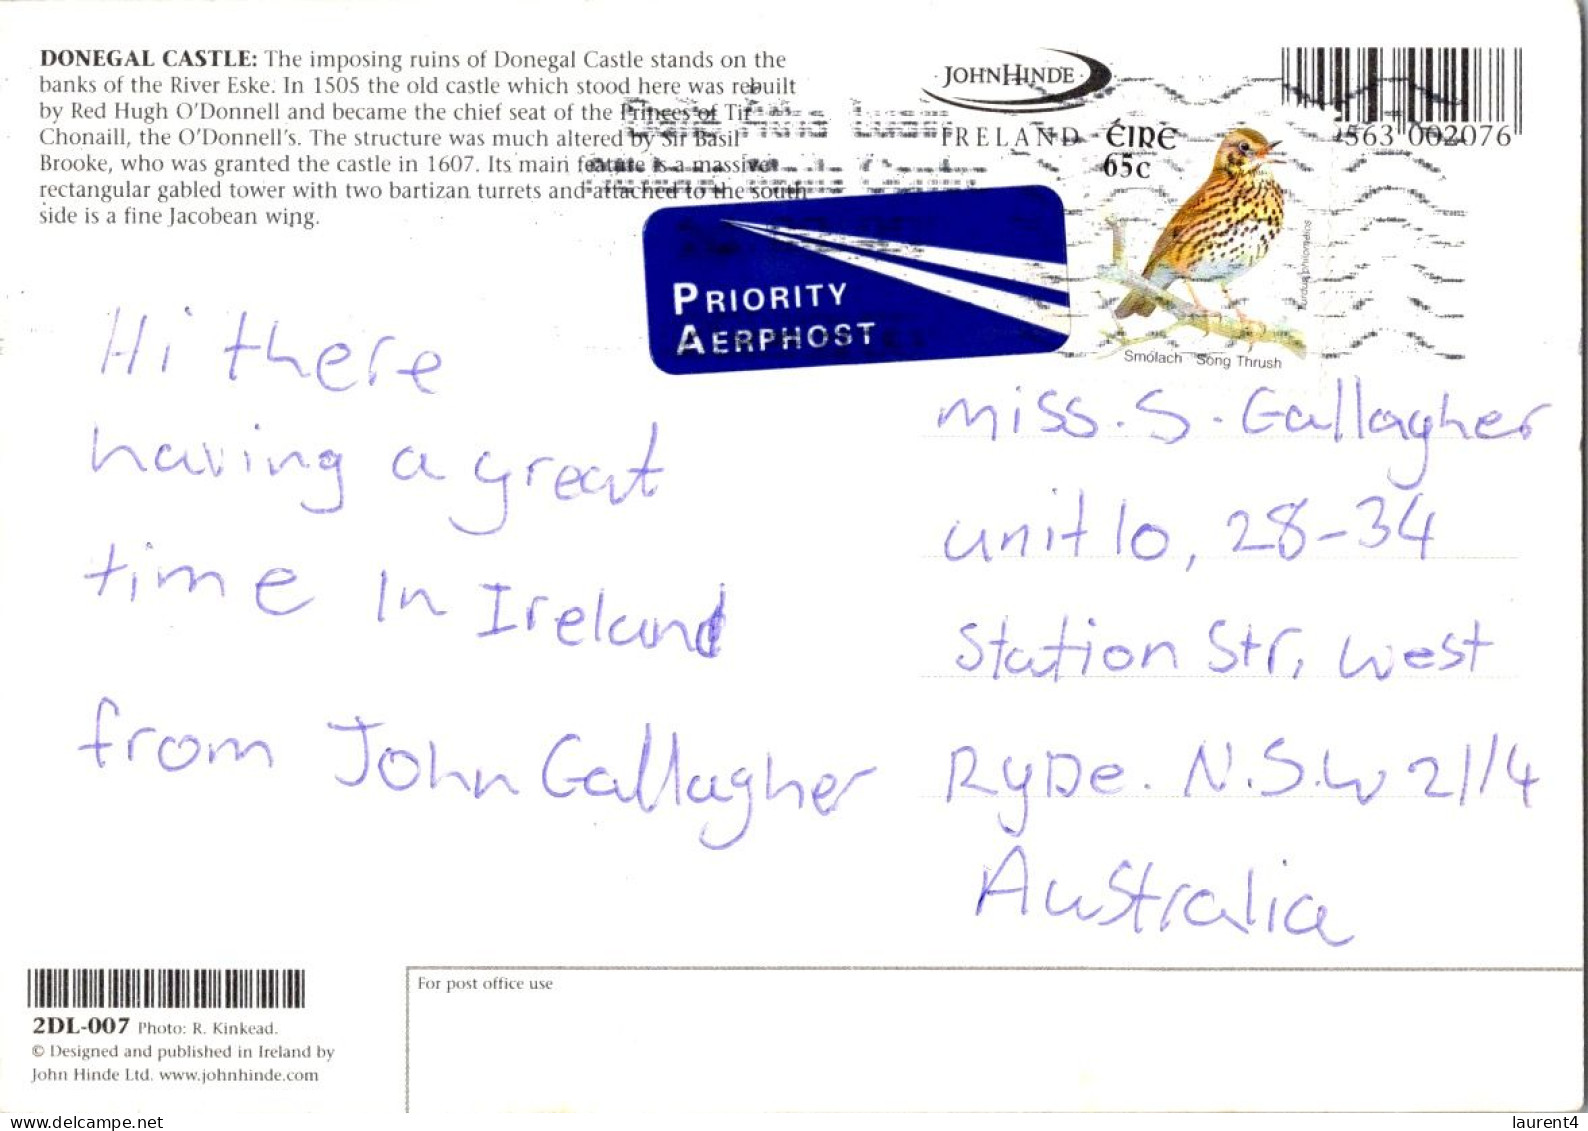 DONEGAL CASTLE: The imposing ruins of Donegal Castle stands on the
banks of the River Eske. In 1505 the old castle which stood here was rebuilt
by Red Hugh O'Donnell and became the chief seat of the Princes of Tir
Chonaill, the O'Donnell's. The structure was much altered by Sir Basil
Brooke, who was granted the castle in 1607. Its main feature is a massive
rectangular gabled tower with two bartizan turrets and attached to the south
side is a fine Jacobean wing.
JOHN HINDE
IRELAND
563 002076
ÉIRE
65c
Smólach Song Thrush
PRIORITY
AERPHOST
Hi there
having a great
time In Ireland
from John Gallagher
miss. S. Gallagher
unit 10, 28-34
Station Str, West
RyDe. N.S.W 2114
Australia
For post office use
2DL-007 Photo: R. Kinkead.
© Designed and published in Ireland by
John Hinde Ltd. www.johnhinde.com
www.delcampe.net
laurent4